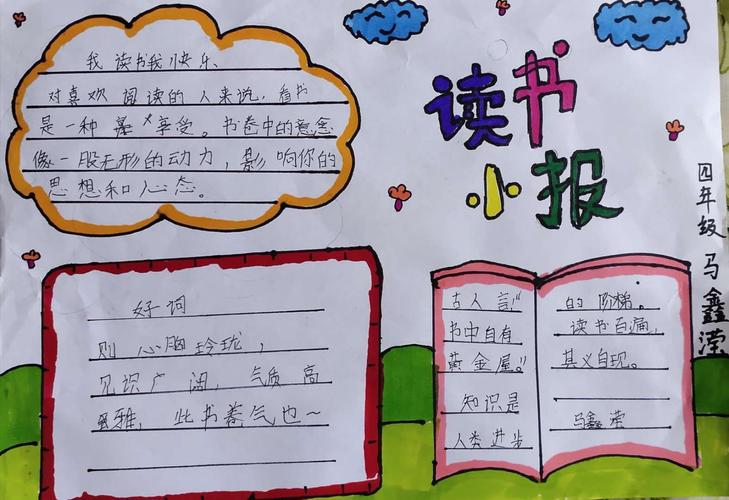 我读书我快乐
对喜欢阅读的人来说，看书
是一种享受。书卷中的意念
像一股无形的动力，影响你的
思想和心态。
读书
小报
四年级 马鑫滢
好词
则心胸玲珑，
见识广阔，气质高
雅，此书卷气也~
古人言"
书中自有
黄金屋。"
知识是
人类进步
的阶梯。
读书百遍，
其义自现。
马鑫滢